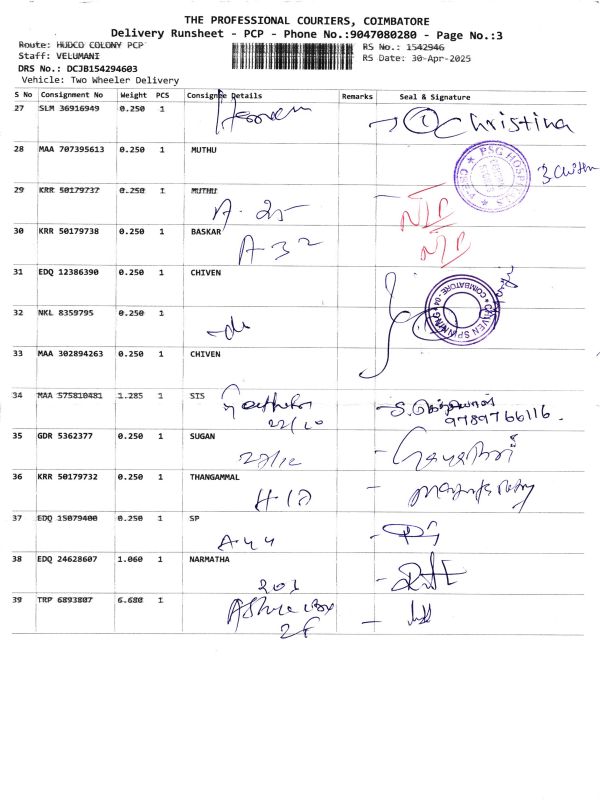 THE PROFESSIONAL COURIERS, COIMBATORE
Delivery Runsheet - PCP - Phone No.:9047080280 - Page No.:3
Route: HUDCO COLONY PCP
RS No.: 1542946
Staff: VELUMANI
RS Date: 30-Apr-2025
DRS No.: DCJB154294603
Vehicle: Two Wheeler Delivery
S No Consignment No Weight PCS Consignee Details Remarks Seal & Signature
27 SLM 36916949 0.250 1
@ Christina
28 MAA 707395613 0.250 1 MUTHU
PSG HOSPITALS
29 KRR 50179737 0.250 1 MUTHU
A-25
30 KRR 50179738 0.250 1 BASKAR
A-32
31 EDQ 12386390 0.250 1 CHIVEN
CHIVEN SPINNING
COIMBATORE - 04
32 NKL 8359795 0.250 1
-do
33 MAA 302894263 0.250 1 CHIVEN
34 MAA 575810481 1.285 1 SIS
22/20
9789766116.
35 GDR 5362377 0.250 1 SUGAN
36 KRR 50179732 0.250 1 THANGAMMAL
37 EDQ 15079400 0.250 1 SP
A-44
38 EDQ 24628607 1.060 1 NARMATHA
203
39 TRP 6893807 6.680 1
2F